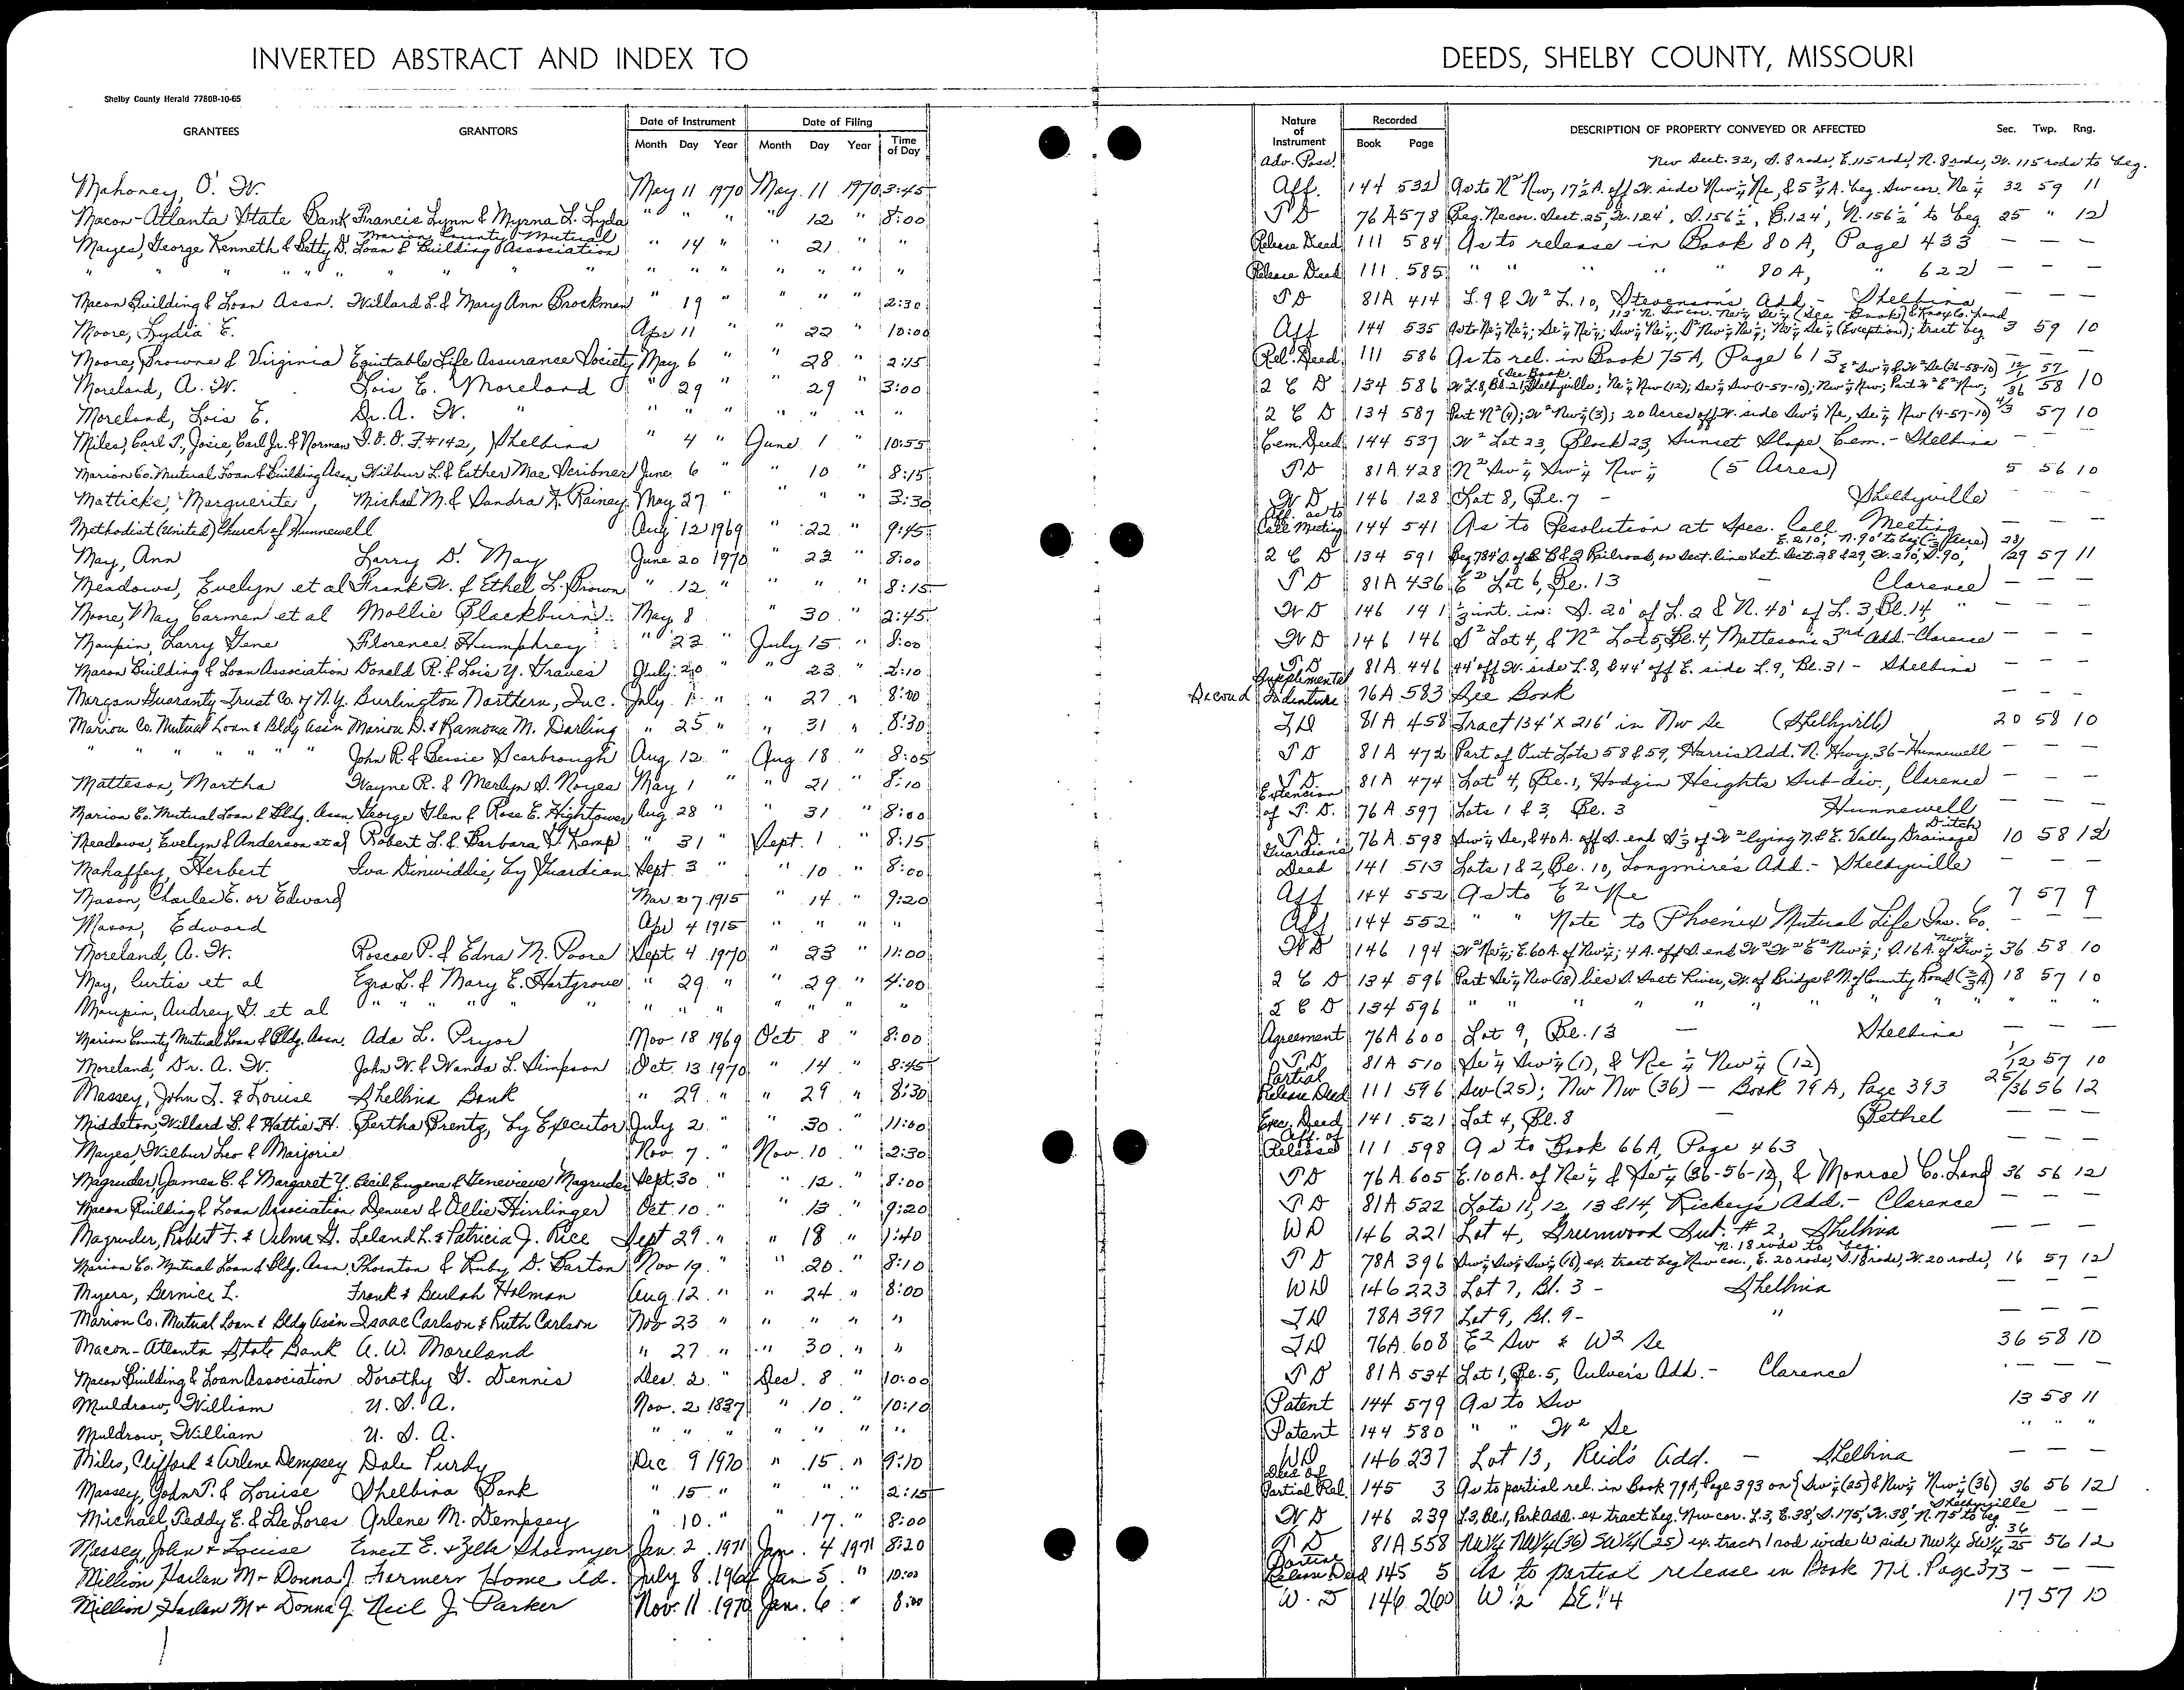 INVERTED ABSTRACT AND INDEX TO DEEDS, SHELBY COUNTY, MISSOURI
Shelby County Herald 7780B-10-65
GRANTEES GRANTORS Date of Instrument Date of Filing Nature of Instrument Recorded DESCRIPTION OF PROPERTY CONVEYED OR AFFECTED Sec. Twp. Rng.
Month Day Year Month Day Year Time of Day Book Page
Adv. Poss. Nw Sect. 32, S. 8 rods, E. 115 rods, N. 8 rods, W. 115 rods to beg.
Mahoney, O. W. May 11 1970 May 11 1970 3:45 Aff. 144 532 As to N² Nw, 17½ A. off W. side Nw¼ Ne, & 5¾ A. beg. Sw cor. Ne¼ 32 59 11
Macon-Atlanta State Bank Francis Lynn & Myrna L. Lyda " " " " 12 " 8:00 T D 76A 578 Beg. Ne cor. Sect. 25, W. 124', S. 156½', E. 124', N. 156½' to beg 25 " 12
Mayes, George Kenneth & Betty D. Marion County Mutual Loan & Building Association " 14 " " 21 " " Release Deed 111 584 As to release in Book 80A, Page 433 — — —
" " " " " " " " " " " " " " " " Release Deed 111 585 " " " " " 80A, " 622 — — —
Macon Building & Loan Assn. Willard L. & Mary Ann Brockman " 19 " " " " 2:30 T D 81A 414 L. 9 & W² L. 10, Stevenson's Add. - Shelbina — — —
112' N. Sw cor. Ne¼ Se¼ (See Book) & Knox Co. Land
Moore, Lydia E. Apr 11 " " 22 " 10:00 Aff 144 535 As to Ne¼ Ne¼; Se¼ Ne¼; Sw¼ Ne¼, S² Nw¼ Ne¼; Nw¼ Se¼ (Exception); tract beg 3 59 10
Moore, Browne & Virginia Equitable Life Assurance Society May 6 " " 28 " 2:15 Rel. Deed 111 586 As to rel. in Book 75A, Page 613 — — —
(See Book) E² Sw¼ & W² Se (36-58-10)
Moreland, A. W. Lois E. Moreland " 29 " " 29 " 3:00 2 C D 134 586 W² L. 8, Bl. 21, Shelbyville; Ne¼ Nw (12); Se¼ Sw (1-57-10); Nw¼ Nw; Part W² E² Nw; 12/36 57/58 10
Moreland, Lois E. Dr. A. W. " " " " " " " " 2 C D 134 587 Part N² (4); W² Nw¼ (3); 20 Acres off W. side Sw¼ Ne, Se¼ Nw (4-57-10) 4/3 57 10
Miles, Earl T., Josie, Earl Jr. & Norman I. O. O. F. #142, Shelbina " 4 " June 1 " 10:55 Cem. Deed 144 537 W² Lot 23, Block 23, Sunset Slope Cem. - Shelbina — — —
Marion Co. Mutual Loan & Building Assn. Wilbur L. & Esther Mae Scribner June 6 " " 10 " 8:15 T D 81A 428 N² Sw¼ Sw¼ Nw¼ (5 Acres) 5 56 10
Matticks, Marguerite Michael M. & Sandra K. Rainey May 27 " " " " 3:30 W D 146 128 Lot 8, Bl. 7 - Shelbyville — — —
Methodist (United) Church of Hunnewell Aug 12 1969 " 22 " 9:45 Aff. as to Call Meeting 144 541 As to Resolution at Spec. Call Meeting — — —
E. 210', N. 90' to beg
May, Ann Larry D. May June 20 1970 " 23 " 8:00 2 C D 134 591 Beg. 784' S. of C B & Q Railroad, on Sect. line bet. Sect. 28 & 29, W. 210', S. 90', 28/29 57 11
Meadows, Evelyn et al Frank W. & Ethel L. Brown " 12 " " " " 8:15 T D 81A 436 E² Lot 6, Bl. 13 - Clarence — — —
Moore, May Carmen et al Mollie Blackburn May 8 " 30 " 2:45 W D 146 141 ½ int. in: S. 20' of L. 2 & N. 40' of L. 3, Bl. 14, " — — —
Maupin, Larry Gene Florence Humphrey " 23 " July 15 " 8:00 W D 146 146 S² Lot 4, & N² Lot 5, Bl. 4, Matteson's 3rd Add. - Clarence — — —
Macon Building & Loan Association Donald R. & Lois Y. Graves July 20 " " 23 " 2:10 T D 81A 446 44' off W. side L. 8, & 44' off E. side L. 9, Bl. 31 - Shelbina — — —
Morgan Guaranty Trust Co. of N.Y. Burlington Northern, Inc. July 1 " " 27 " 8:00 Second Supplemental Indenture 76A 583 See Book — — —
Marion Co. Mutual Loan & Bldg Ass'n Marion D. & Ramona M. Darling " 25 " " 31 " 8:30 T D 81A 458 Tract 134' x 216' in Nw Se (Shelbyville) 20 58 10
" " " " " " John R. & Bessie Scarbrough Aug. 12 " Aug. 18 " 8:05 T D 81A 472 Part of Out Lots 58 & 59, Harris Add. N. Hwy. 36 - Hunnewell — — —
Matteson, Martha Wayne R. & Merlyn S. Noyes May 1 " " 21 " 8:10 T D 81A 474 Lot 4, Bl. 1, Hodgin Heights Sub-div., Clarence — — —
Marion Co. Mutual Loan & Bldg. Assn. George Glen & Rose E. Hightower Aug. 28 " " 31 " 8:00 Extension of T. D. 76A 597 Lots 1 & 3, Bl. 3 Hunnewell — — —
Meadows, Evelyn & Anderson et al Robert L. & Barbara J. Kemp " 31 " Sept. 1 " 8:15 T D 76A 598 Sw¼ Se, & 40 A. off S. end S⅓ of W² lying N. & E. Valley Drainage Ditch 10 58 12
Mahaffey, Herbert Iva Dinwiddie, by Guardian Sept. 3 " " 10 " 8:00 Guardian's Deed 141 513 Lots 1 & 2, Bl. 10, Longmire's Add. - Shelbyville — — —
Mason, Charles E. or Edward Mar. 27 1915 " 14 " 9:20 Aff 144 552 As to E² Ne 7 57 9
Mason, Edward Apr 4 1915 " " " " Aff 144 552 " " Note to Phoenix Mutual Life Ins. Co. — — —
Moreland, A. W. Roscoe P. & Edna M. Poore Sept. 4 1970 " 23 " 11:00 W D 146 194 W² Ne¼; E. 60 A. of Nw¼; 4 A. off S. end W² W² E² Nw¼; S. 16 A. of Nw¼ Sw¼ 36 58 10
May, Curtis et al Ezra L. & Mary E. Hartgrove " 29 " " 29 " 4:00 2 C D 134 596 Part Se¼ Nw (18) lies S. Salt River, W. of Bridge & N. of County Road 18 57 10
Maupin, Audrey G. et al " " " " " " " " " " " " 2 C D 134 596 " " " " " " " " " "
Marion County Mutual Loan & Bldg. Assn. Ada L. Pryor Nov. 18 1969 Oct. 8 " 8:00 Agreement 76A 600 Lot 9, Bl. 13 — Shelbina — — —
Moreland, Dr. A. W. John W. & Wanda L. Simpson Oct. 13 1970 " 14 " 8:45 T D 81A 510 Se¼ Sw¼ (1), & Ne¼ Nw¼ (12) 1/12 57 10
Massey, John T. & Louise Shelbina Bank " 29 " " 29 " 8:30 Partial Release Deed 111 596 Sw (25); Nw Nw (36) - Book 79A, Page 393 25/36 56 12
Middleton, Willard L. & Hattie H. Bertha Prentz, by Executor July 2 " " 30 " 11:00 Exec. Deed 141 521 Lot 4, Bl. 8 — Bethel — — —
Mayes, Wilbur Leo & Marjorie Nov. 7 " Nov. 10 " 2:30 Aff. of Release 111 598 As to Book 66A, Page 463 — — —
Magruder, James C. & Margaret Y. Cecil Eugene & Genevieve Magruder Sept. 30 " " 12 " 8:00 T D 76A 605 E. 100 A. of Ne¼ & Se¼ (36-56-12), & Monroe Co. Land 36 56 12
Macon Building & Loan Association Denver & Ollie Hirrlinger Oct. 10 " " 13 " 9:20 T D 81A 522 Lots 11, 12, 13 & 14, Rickey's Add. - Clarence — — —
Magruder, Robert F. & Velma G. Leland L. & Patricia J. Rice Sept 29 " " 18 " 1:40 WD 146 221 Lot 4, Grunwood Sub. #2, Shelbina — — —
N. 18 rods to beg.
Marion Co. Mutual Loan & Bldg. Assn. Thornton & Ruby D. Barton Nov 19 " " 20 " 8:10 T D 78A 396 Sw¼ Sw¼ Sw¼ (16), ex. tract beg Nw cor., E. 20 rods, S. 18 rods, W. 20 rods, 16 57 12
Myers, Bernice L. Frank & Beulah Holman Aug. 12 " " 24 " 8:00 WD 146 223 Lot 7, Bl. 3 - Shelbina — — —
Marion Co. Mutual Loan & Bldg Ass'n Isaac Carlson & Ruth Carlson Nov 23 " " " " " T D 78A 397 Lot 9, Bl. 9 - " — — —
Macon-Atlanta State Bank A. W. Moreland " 27 " " 30 " " T D 76A 608 E² Sw & W² Se 36 58 10
Macon Building & Loan Association Dorothy G. Dennis Dec. 2 " Dec. 8 " 10:00 T D 81A 534 Lot 1, Bl. 5, Culver's Add. - Clarence — — —
Muldrow, William U. S. A. Nov. 2 1837 " 10 " 10:10 Patent 144 579 As to Sw 13 58 11
Muldrow, William U. S. A. " " " " " " " Patent 144 580 " " W² Se " " "
Miles, Clifford & Arlene Dempsey Dale Purdy Dec 9 1970 " 15 " 9:10 WD 146 237 Lot 13, Reid's Add. — Shelbina — — —
Massey, John T. & Louise Shelbina Bank " 15 " " " " 2:15 Deed of Partial Rel. 145 3 As to partial rel. in Book 79A, Page 393 on Sw¼ (25) & Nw¼ Nw¼ (36) 36 56 12
Michael, Teddy E. & De Lores Arlene M. Dempsey " 10 " " 17 " 8:00 W D 146 239 L. 3, Bl. 1, Park Add. ex tract beg. Nw cor. L. 3, E. 38', S. 175', W. 38', N. 175' to beg Shelbyville — —
Massey, John & Louise Ernest E. & Zella Shoemyer Jan. 2 1971 Jan. 4 1971 8:20 T D 81A 558 NW¼ NW¼ (36) SW¼ (25) ex. tract 1 rod wide W side NW¼ SW¼ 36/25 56 12
Million Harlan M & Donna J. Farmers Home Ad. July 8 Jan 5 " 10:00 Partial Release Deed 145 5 As to partial release in Book 77A Page 373 — — —
Million Harlan M & Donna J. Neil J. Parker Nov. 11 1970 Jan. 6 " 8:00 W. D 146 260 W½ SE¼ 17 57 10